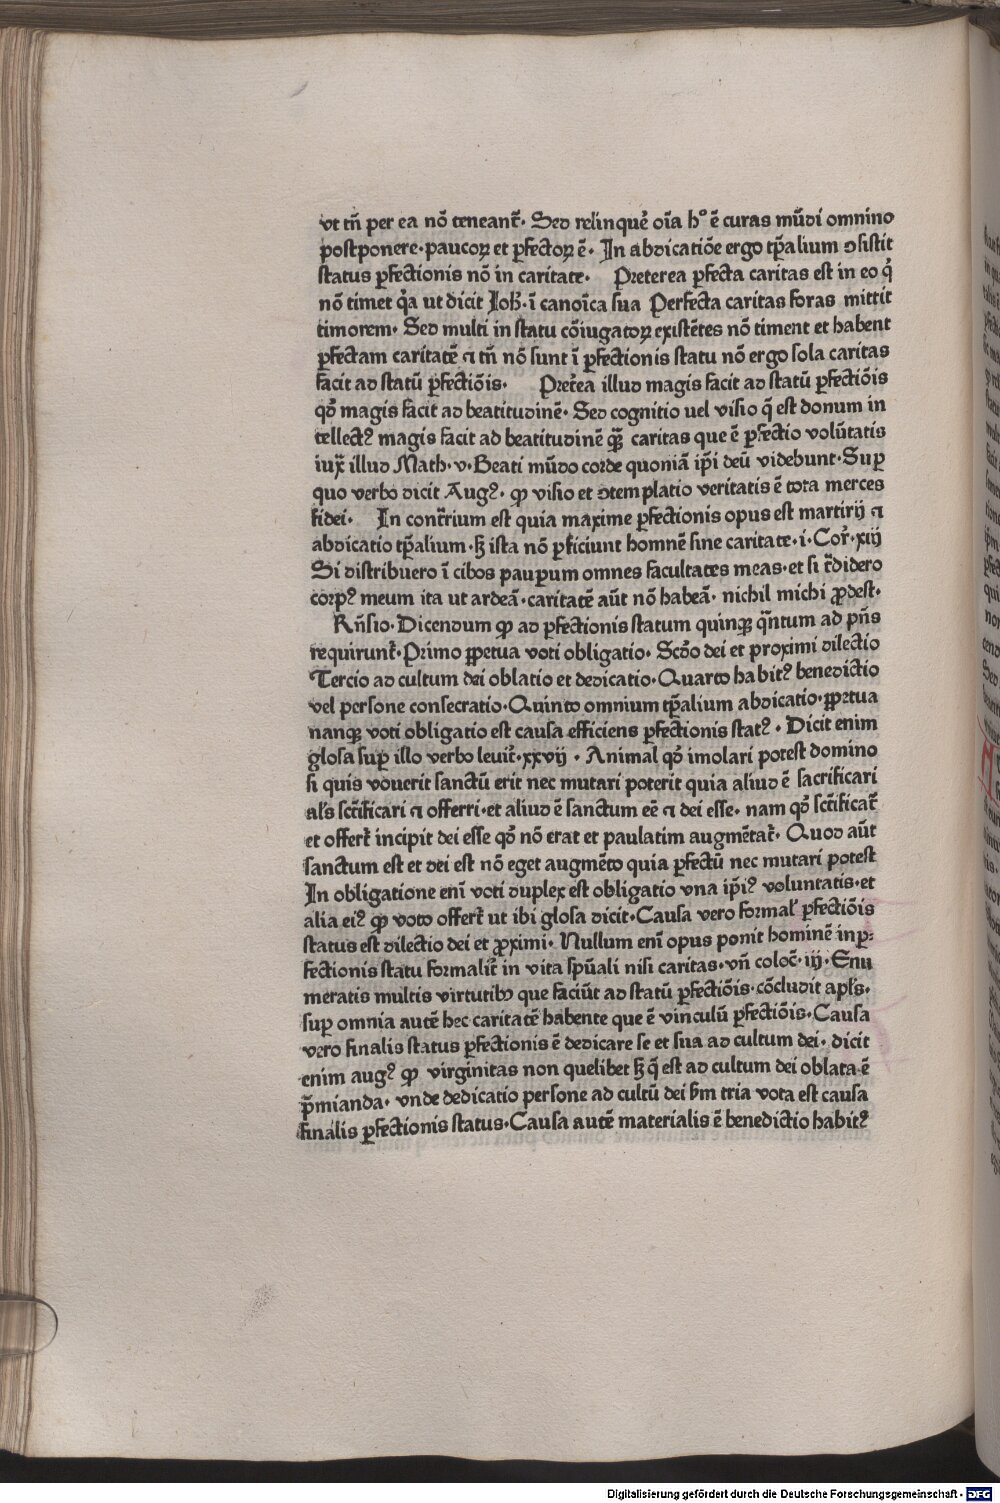 vt tñ per ea nõ teneant᷑· Sed relinque᷑ oĩa h° ẽ curas mũdi omnino
postponere·paucoꝝ et ꝑfectoꝝ ẽ· In abdicatiõe ergo tp̃alium ↄsistit
status ꝑfectionis nõ in caritate· Preterea ꝑfecta caritas est in eo q̇
nõ timet q̃a ut dicit Joh̃·ĩ canoĩca sua Perfecta caritas foras mittit
timorem· Sed multi in statu cõiugatoꝝ existẽtes nõ timent et habent
ꝑfectam caritatẽ ⁊ tñ nõ sunt ĩ ꝑfectionis statu nõ ergo sola caritas
facit ad statũ ꝑfectiõis· Pret᷑ea illud magis facit ad statũ ꝑfectiõis
qđ magis facit ad beatitudinẽ· Sed cognitio uel visio q̃ est donum in
tellectꝰ magis facit ad beatitudinẽ qꝫ̃ caritas que ẽ ꝑfectio volũtatis
iux̃ illud Math·v·Beati mũdo corde quoniã ip̃i deũ videbunt·Suꝑ
quo verbo dicit Augꝰ· ꝙ visio et ↄtemplatio veritatis ẽ tota merces
fidei· In cont᷑rium est quia maxime ꝑfectionis opus est martirij ⁊
abdicatio tp̃alium·ꝫ ista nõ ꝑficiunt homnẽ sine caritate·i·Cor᷑·xiij
Si distribuero ĩ cibos pauꝑum omnes facultates meas·et si t᷑didero
corpꝰ meum ita ut ardeã·caritatẽ aũt nõ habeã· nichil michi ꝓdest·
Rñsio·Dicendum ꝙ ad ꝑfectionis statum quinqꝫ q̃ntum ad pñs
requirunt᷑·Primo ꝑpetua voti obligatio· Scđo dei et proximi dilectio
Tercio ad cultum dei oblatio et dedicatio·Quarto habitꝰ benedictio
vel persone consecratio·Quinto omnium tp̃alium abdicatio·ꝑpetua
nanqꝫ voti obligatio est causa efficiens ꝑfectionis statꝰ · Dicit enim
glosa suꝑ illo verbo leuit᷑·xxvij · Animal qđ imolari potest domino
si quis vouerit sanctũ erit nec mutari poterit quia aliud ẽ sacrificari
al̃s sct̃ificari ⁊ offerri·et aliud ẽ sanctum eẽ ⁊ dei esse· nam qđ sct̃ificat᷑
et offert᷑ incipit dei esse qđ nõ erat et paulatim augmẽtat᷑· Quod aũt
sanctum est et dei est nõ eget augmẽto quia ꝑfectũ nec mutari potest
In obligatione enĩ voti duplex est obligatio vna ip̃iꝰ voluntatis·et
alia eiꝰ ꝙ voto offert᷑ ut ibi glosa dicit·Causa vero formal̃ ꝑfectiõis
status est dilectio dei et ꝓximi· Nullum enĩ opus ponit hominẽ in ꝑ⸗
fectionis statu formalit᷑ in vita sp̃uali nisi caritas·vñ coloc̃·iij·Enu
meratis multis virtutibꝫ que faciũt ad statũ ꝑfectiõis·cõcludit apl̃s·
suꝑ omnia autẽ hec caritatẽ habente que ẽ vinculũ ꝑfectiõis·Causa
vero finalis status ꝑfectionis ẽ dedicare se et sua ad cultum dei· dicit
enim augꝰ ꝙ virginitas non quelibet ꝫ q̃ est ad cultum dei oblata ẽ
p̃mianda· vnde dedicatio persone ad cultũ dei ẜm tria vota est causa
finalis ꝑfectionis status·Causa autẽ materialis ẽ benedictio habitꝰ
Digitalisierung gefördert durch die Deutsche Forschungsgemeinschaft - DFG